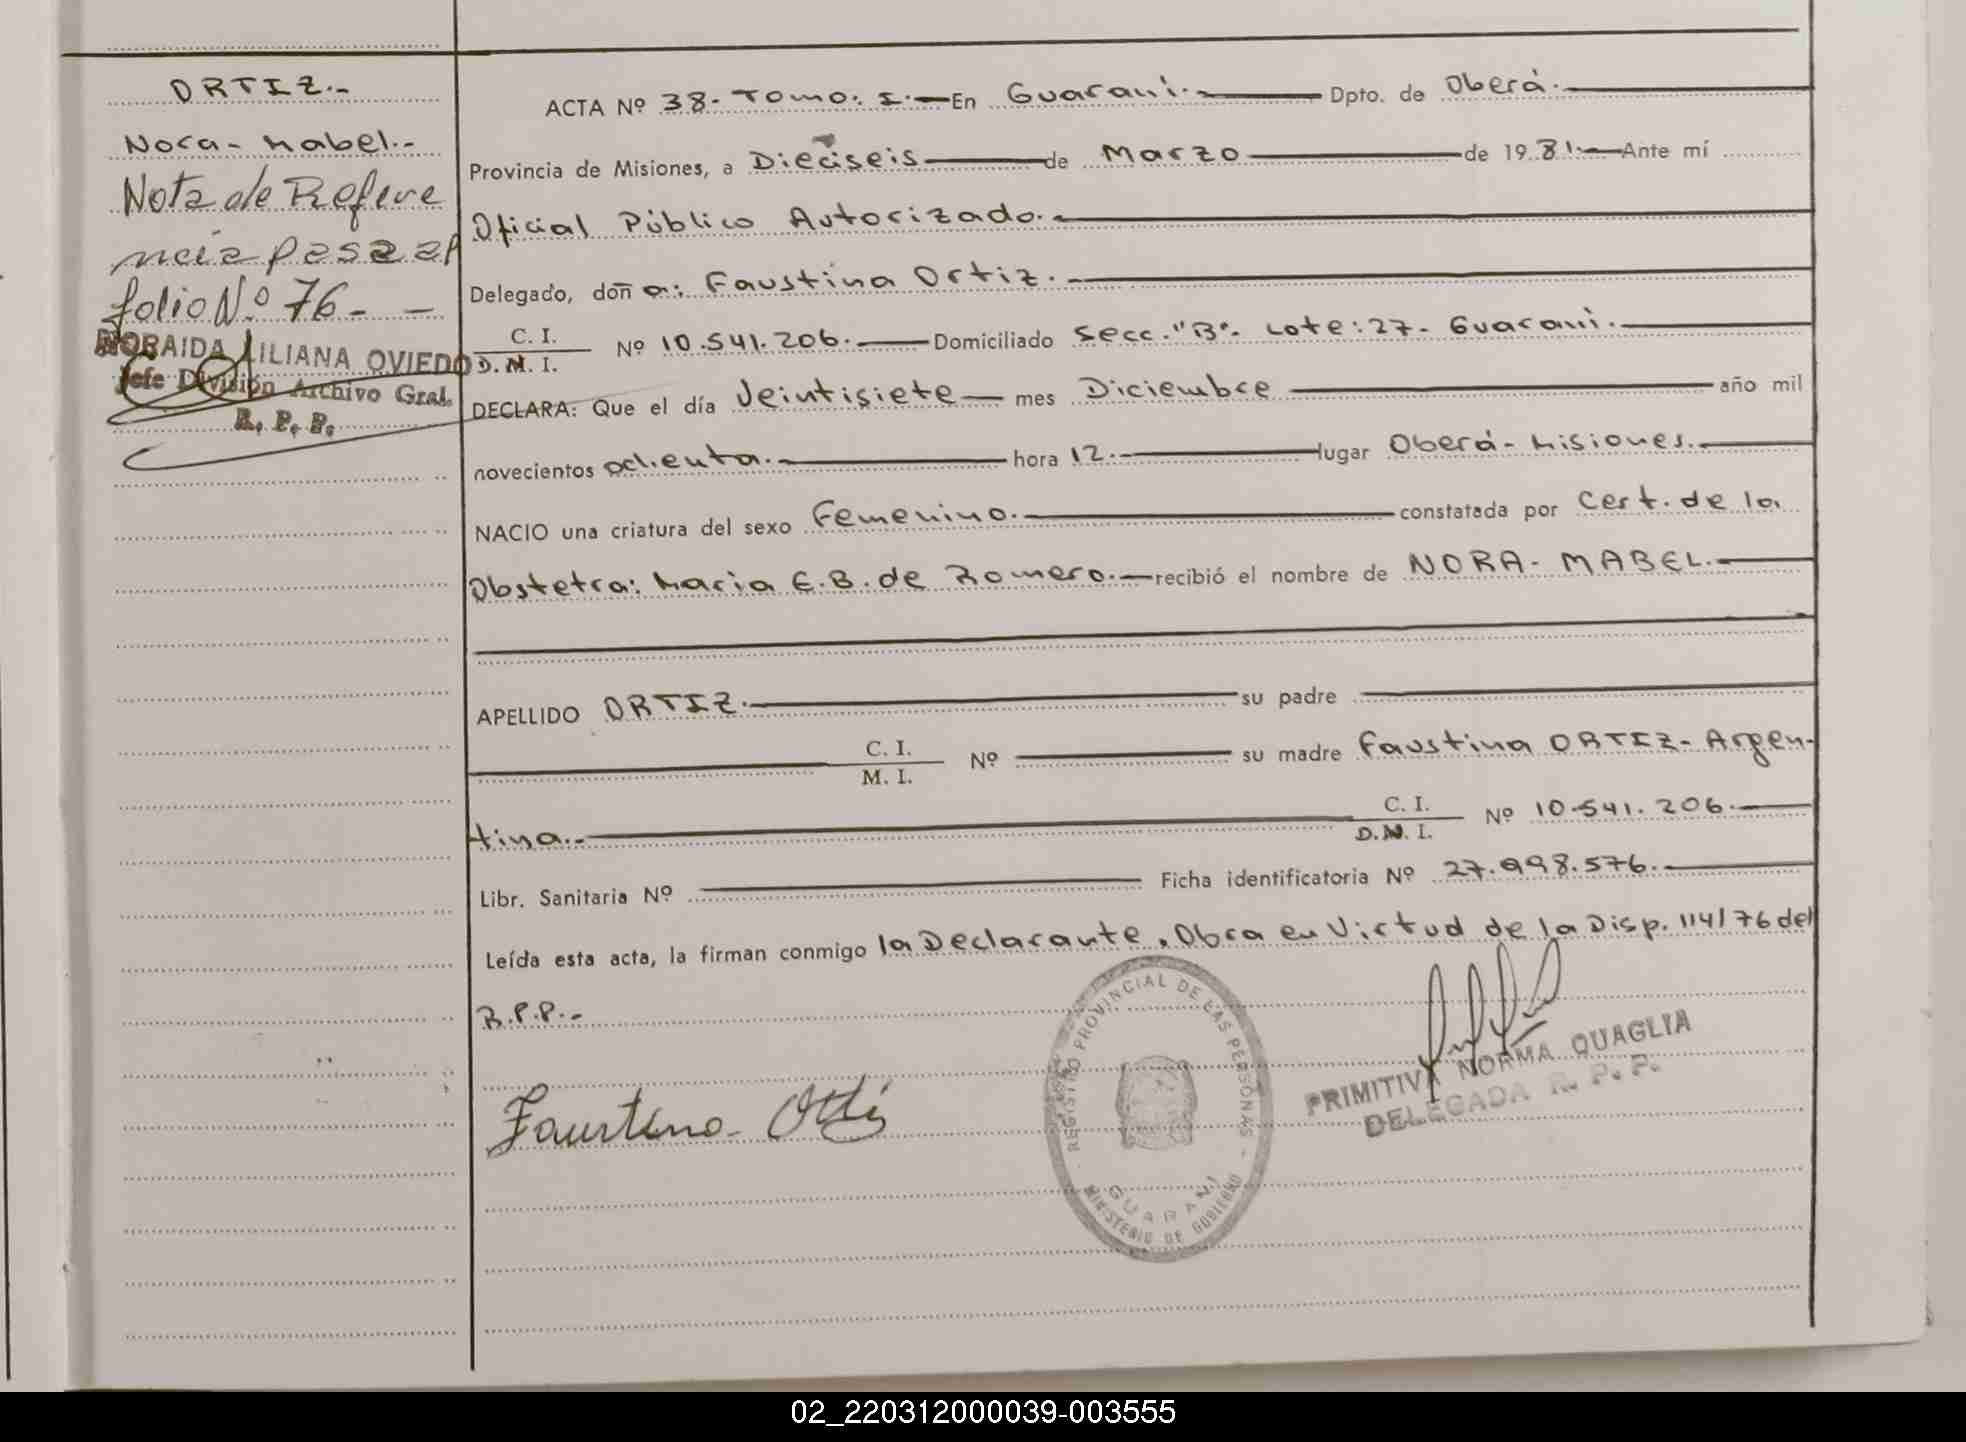 ORTIZ.-
Nora- Mabel.-
Nota de Refere
ncia pasa al
folio Nº 76- -
NORAIDA LILIANA OVIEDO
Jefe División Archivo Gral.
R. P. P.
ACTA Nº 38- Tomo: I.- En Guaraní.- Dpto. de Oberá.-
Provincia de Misiones, a Dieciseis de Marzo de 1981.- Ante mí
Oficial Público Autorizado.-
Delegado, doña: Faustina Ortiz.-
C. I.
D. N. I. Nº 10.541.206.- Domiciliado Secc. "B"- Lote: 27- Guaraní.-
DECLARA: Que el día Veintisiete- mes Diciembre año mil
novecientos ochenta.- hora 12.- lugar Oberá- Misiones.-
NACIO una criatura del sexo Femenino.- constatada por Cert. de la
Obstetra: Maria E.B. de Romero.- recibió el nombre de NORA- MABEL.-
APELLIDO ORTIZ.- su padre
C. I.
M. I. Nº su madre Faustina ORTIZ- Argen-
tina.- C. I.
D. N. I. Nº 10.541.206.-
Libr. Sanitaria Nº Ficha identificatoria Nº 27.998.576.-
Leída esta acta, la firman conmigo la Declarante. Obra en Virtud de la Disp. 114/76 del
R.P.P.-
Faustina Ortiz
REGISTRO PROVINCIAL DE LAS PERSONAS
GUARANI
MINISTERIO DE GOBIERNO
PRIMITIVA NORMA QUAGLIA
DELEGADA R. P. P.
02_220312000039-003555